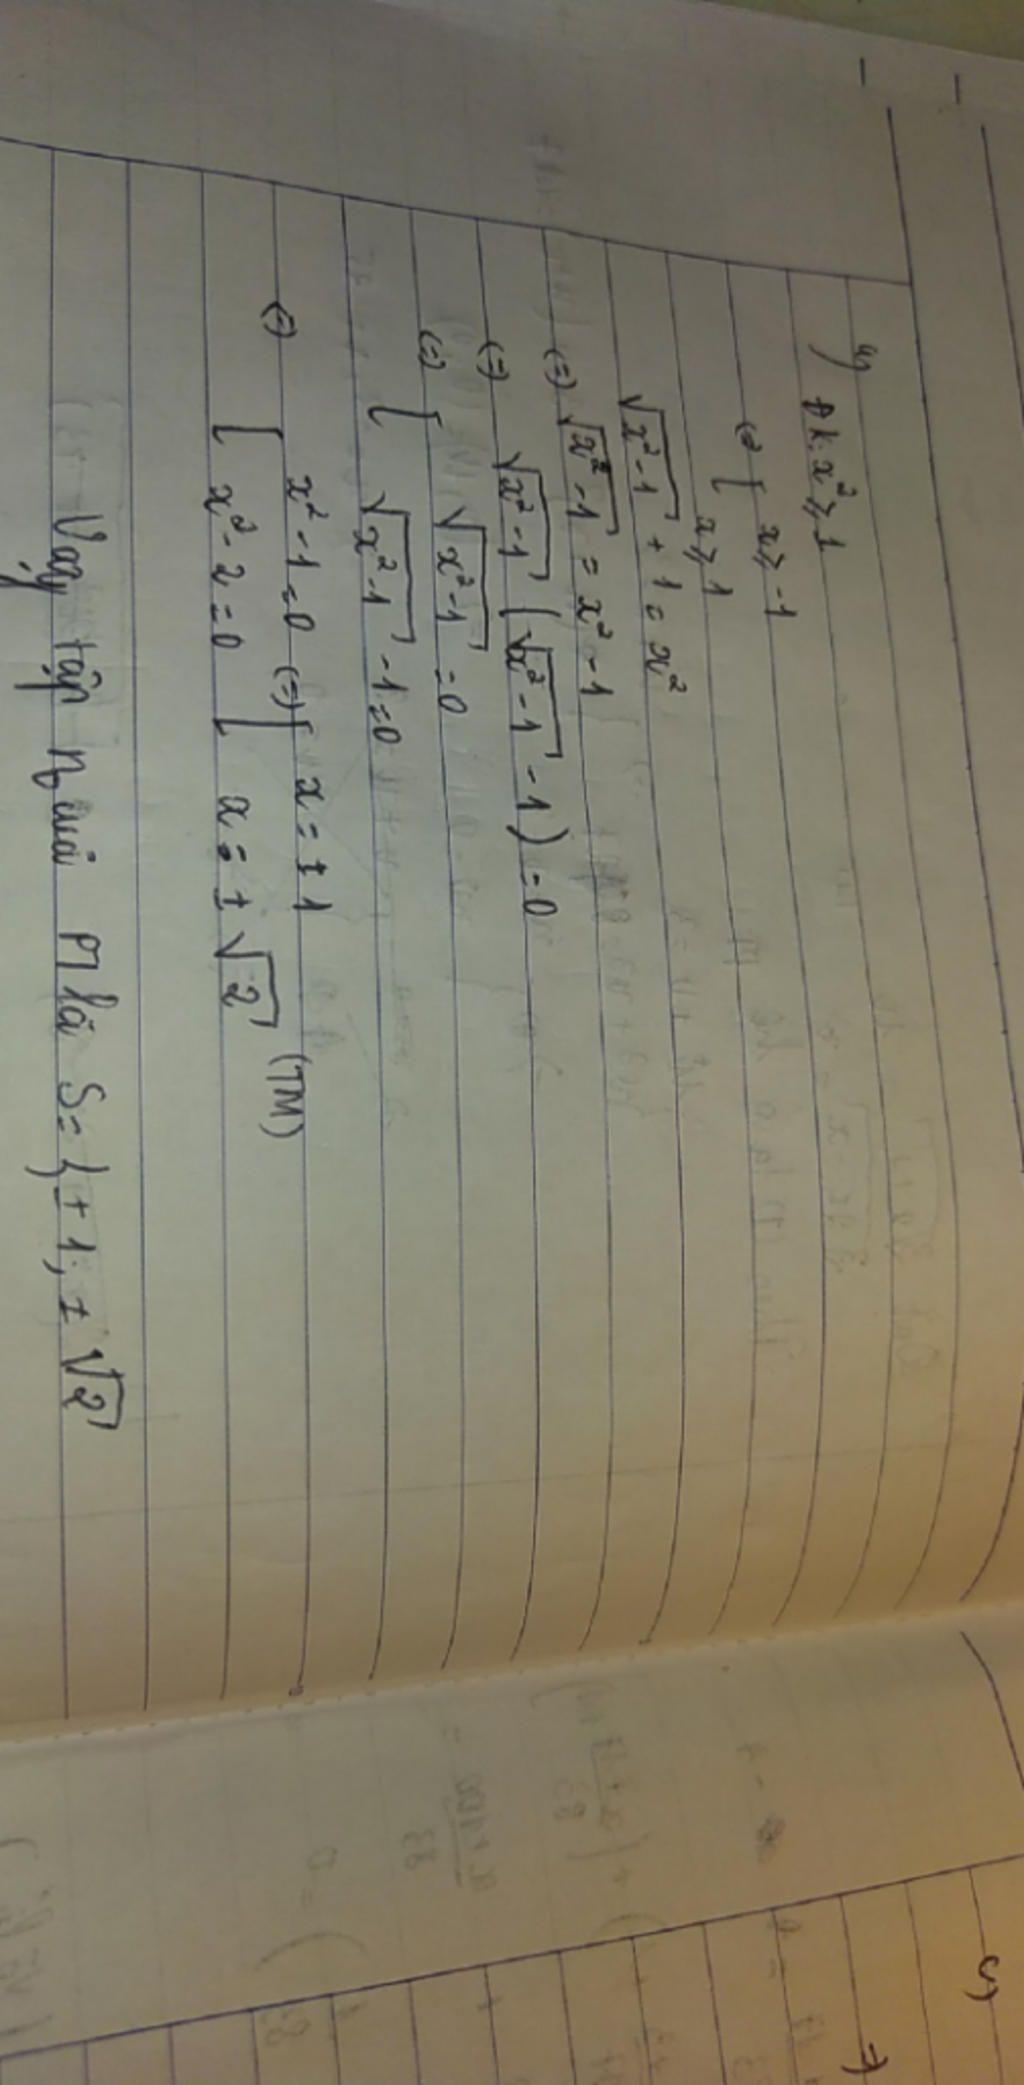 y)
ĐK: x² ≥ 1
(=) [ x ≥ -1
x ≥ 1
√x²-1 + 1 = x²
(=) √x²-1 = x² - 1
(=) √x²-1 (√x²-1 - 1) = 0
(=) [ √x²-1 = 0
√x²-1 - 1 = 0
(=) [ x² - 1 = 0 (=) [ x = ± 1
x² - 2 = 0 x = ± √2 (TM)
Vậy tập n₀ của PT là S = { ± 1; ± √2